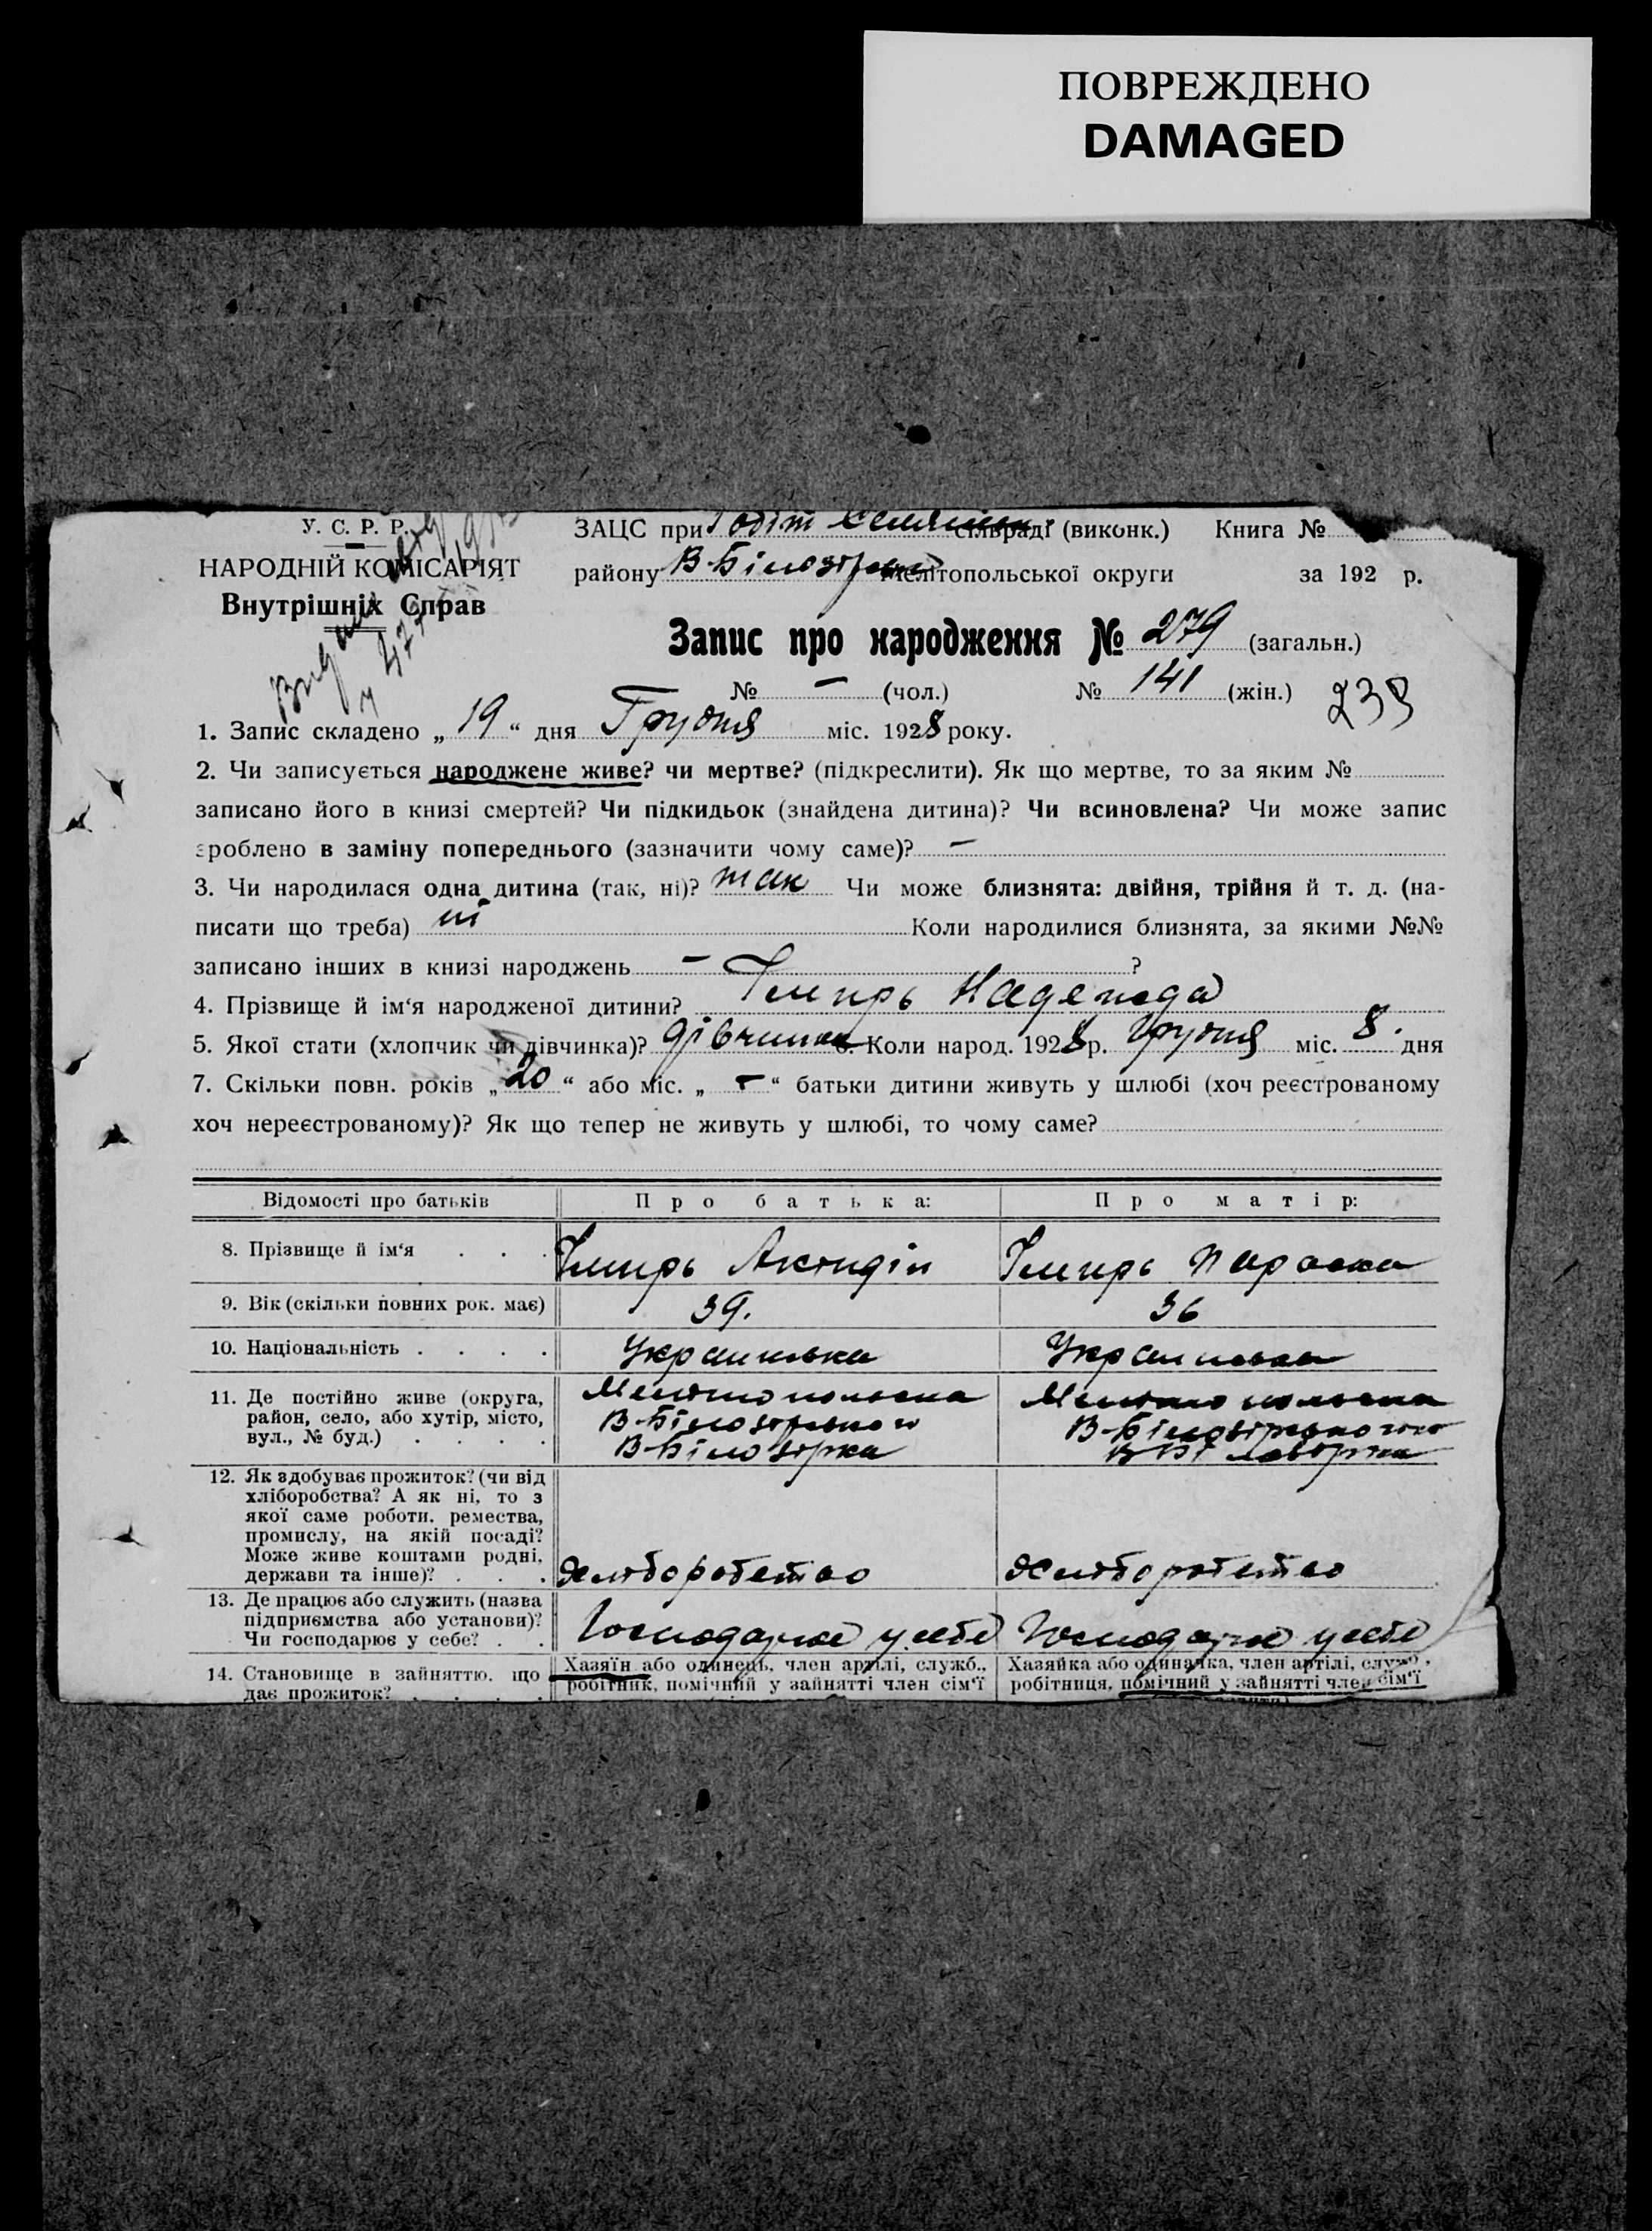 ПОВРЕЖДЕНО
DAMAGED
У. С. Р. Р.
НАРОДНІЙ КОМІСАРІЯТ
Внутрішніх Справ
ЗАЦС при сільраді (виконк.) Книга №
району В-Білозірська Мелітопольської округи за 192 р.
Запис про народження № 279 (загальн.)
№ — (чол.) № 141 (жін.) 233
1. Запис складено „ 19 “ дня Грудня міс. 1928 року.
2. Чи записується народжене живе? чи мертве? (підкреслити). Як що мертве, то за яким №
записано його в книзі смертей? Чи підкидьок (знайдена дитина)? Чи всиновлена? Чи може запис
зроблено в заміну попереднього (зазначити чому саме)? —
3. Чи народилася одна дитина (так, ні)? так Чи може близнята: двійня, трійня й т. д. (на-
писати що треба) ні Коли народилися близнята, за якими №№
записано інших в книзі народжень — ?
4. Прізвище й ім‘я народженої дитини? Надежда
5. Якої стати (хлопчик чи дівчинка)? дівчинка 6. Коли народ. 1928 р. Грудня міс. 8. дня
7. Скільки повн. років „ 20 “ або міс. „ — “ батьки дитини живуть у шлюбі (хоч реєстрованому
хоч нереєстрованому)? Як що тепер не живуть у шлюбі, то чому саме?
Відомості про батьків Про батька: Про матір:
8. Прізвище й ім‘я . . . Акіндін Параска
9. Вік (скільки повних рок. має) 39. 36
10. Національність . . . . Українська Українська
11. Де постійно живе (округа,
район, село, або хутір, місто,
вул., № буд.) . . . .
Мелітопольська
В-Білозірського
В-Білозірка
Мелітопольська
В-Білозірського
В-Білозірка
12. Як здобуває прожиток? (чи від
хліборобства? А як ні, то з
якої саме роботи, ремества,
промислу, на якій посаді?
Може живе коштами родні,
держави та інше)? . . . Хліборобство Хліборобство
13. Де працює або служить (назва
підприємства або установи)?
Чи господарює у себе? . . Господарює у себе Господарює у себе
14. Становище в зайняттю, що
дає прожиток? . . . .
Хазяїн або одинець, член артілі, служб.,
робітник, помічний у зайнятті член сім‘ї
Хазяйка або одиначка, член артілі, служб.,
робітниця, помічний у зайнятті член сім‘ї